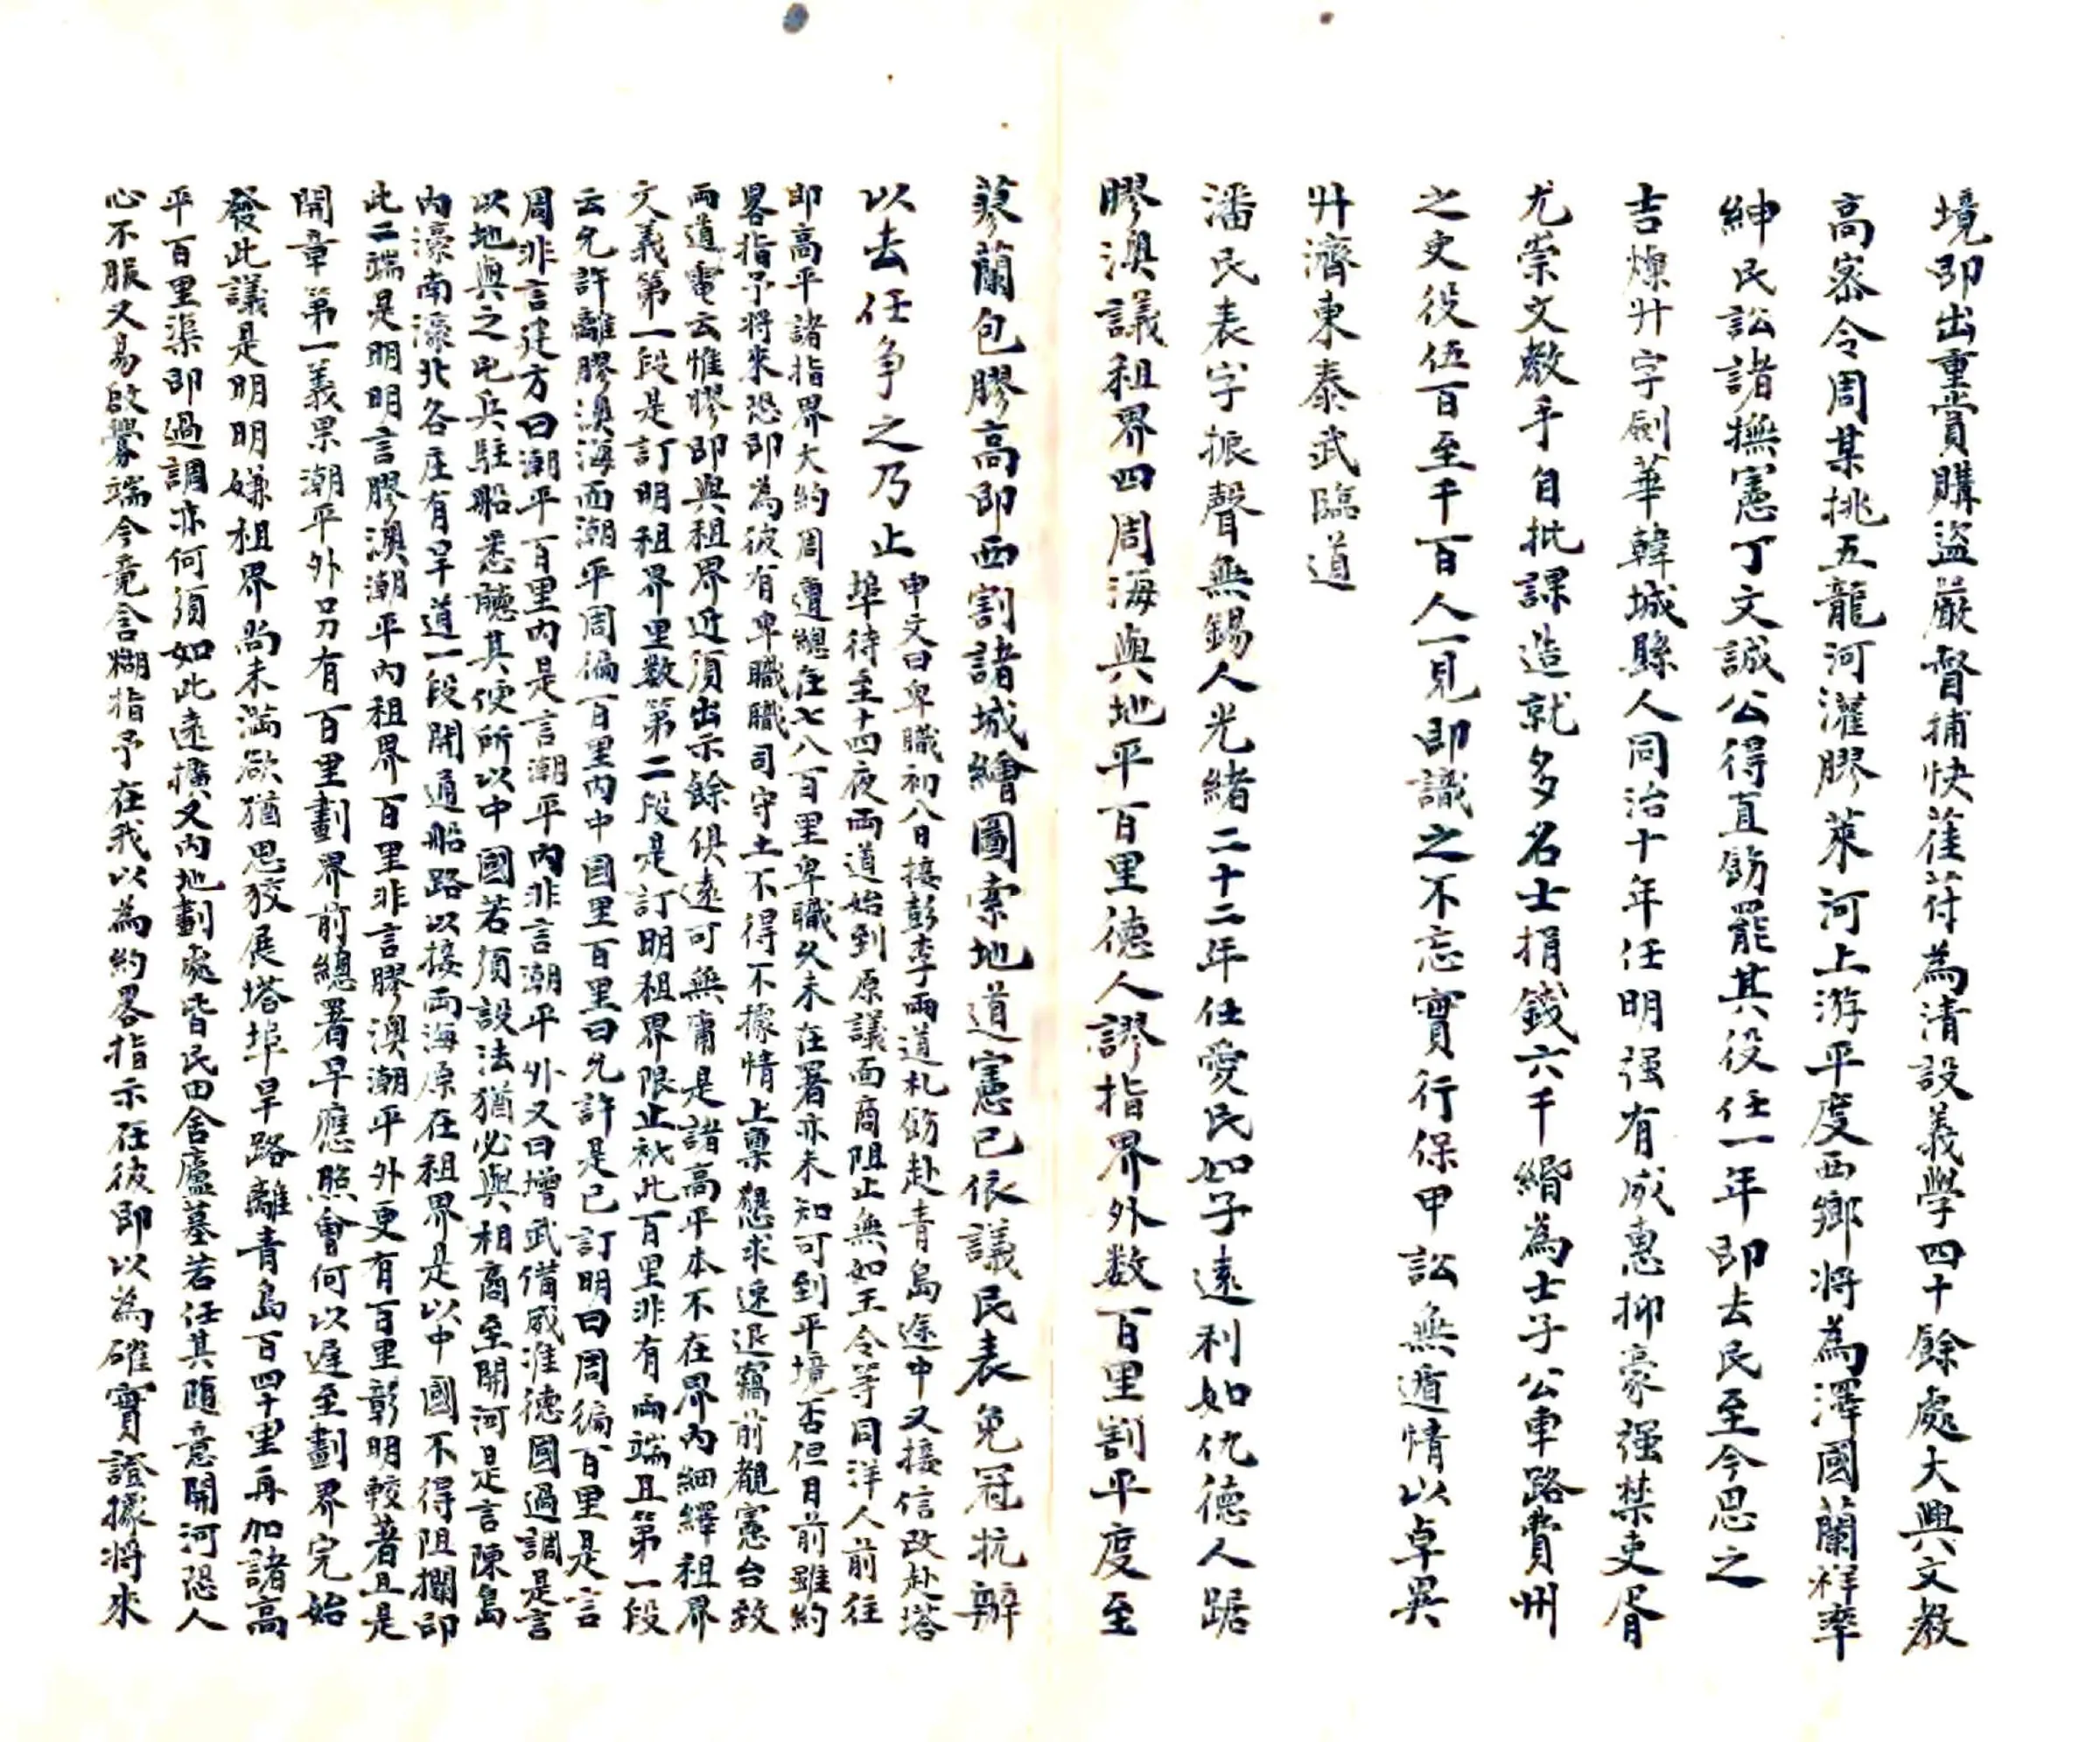 境即出重賞購盜嚴督捕快萑苻為清設義學四十餘處大興文教
高宻令周某挑五龍河灌膠萊河上游平度西鄉將為澤國蘭祥率
紳民訟諸撫憲丁文誠公得直飭罷其役任一年即去民至今思之
吉煉升字劍華韓城縣人同治十年任明强有威惠抑豪强禁吏胥
尤崇文教手自批課造就多名士捐錢六千緡為士子公車路費州
之吏役伍百至千百人一見即識之不忘實行保甲訟無遁情以卓異
升濟東泰武臨道
潘民表字振聲無錫人光緒二十二年任愛民如子遠利如仇德人踞
膠澳議租界四周海與地平百里德人謬指界外数百里割平度至
蓼蘭包膠高即西割諸城繪圖索地道憲已依議民表免冠抗辯
以去任爭之乃止
申文曰卑職初八日接彭李兩道札飭赴青島途中又接信改赴塔
埠待至十四夜兩道始到原議面商阻止無如王令等同洋人前往
即高平諸指界大約周遭總在七八百里卑職久未在署亦未知可到平境否但目前雖約
畧指予將來恐即為彼有卑職職司守土不得不據情上稟懇求速退竊前覩憲台致
兩道電云惟膠即與租界近須出示餘俱遠可無庸是諸高平本不在界內細繹租界
文義第一段是訂明租界里数第二段是訂明租界限止祇此百里非有兩端且第一段
云允許離膠澳海面潮平周徧百里內中國里百里曰允許是已訂明曰周徧百里是言
周非言建方曰潮平百里內是言潮平內非言潮平外又曰增武備威准德國過調是言
以地與之屯兵駐船悉聽其便所以中國若須設法猶必與相商至開河是言陳島
內濠南濠北各庄有旱道一段開通船路以接兩海原在租界是以中國不得阻攔即
此二端是明明言膠澳潮平內租界百里非言膠澳潮平外更有百里彰明較著且是
開章第一義果潮平外另有百里劃界前總署早應照會何以遲至劃界完始
發此議是明明嫌租界尚未滿欲猶思狡展塔埠旱路離青島百四十里再加諸高
平百里渠即過調亦何須如此遠擴又內地劃處皆民田舍廬墓若任其隨意開河恐人
心不服又易啟釁端今竟含糊指予在我以為約畧指示在彼即以為確實證據將來